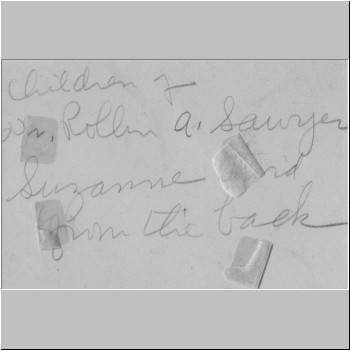 Children of
Dr. Rollin A. Sawyer
Suzanne 3rd
from the back